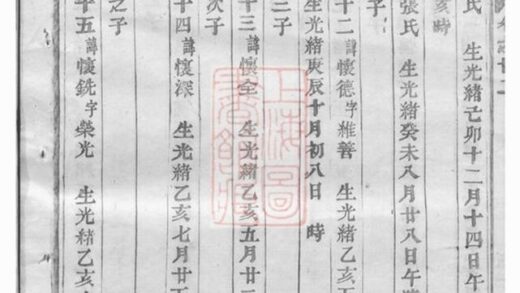 氏 生光緒己卯十二月十四日午
亥時
張氏 生光緒癸未八月廿八日午時
子
十二 諱懷德字維善 生光緒乙亥
生光緒庚辰十月初八日 時
三子
十三 諱懷全 生光緒乙亥五月廿
次子
十四 諱懷深 生光緒乙亥七月廿
之子
十五 諱懷銑字榮光 生光緒乙亥
上海圖書館藏